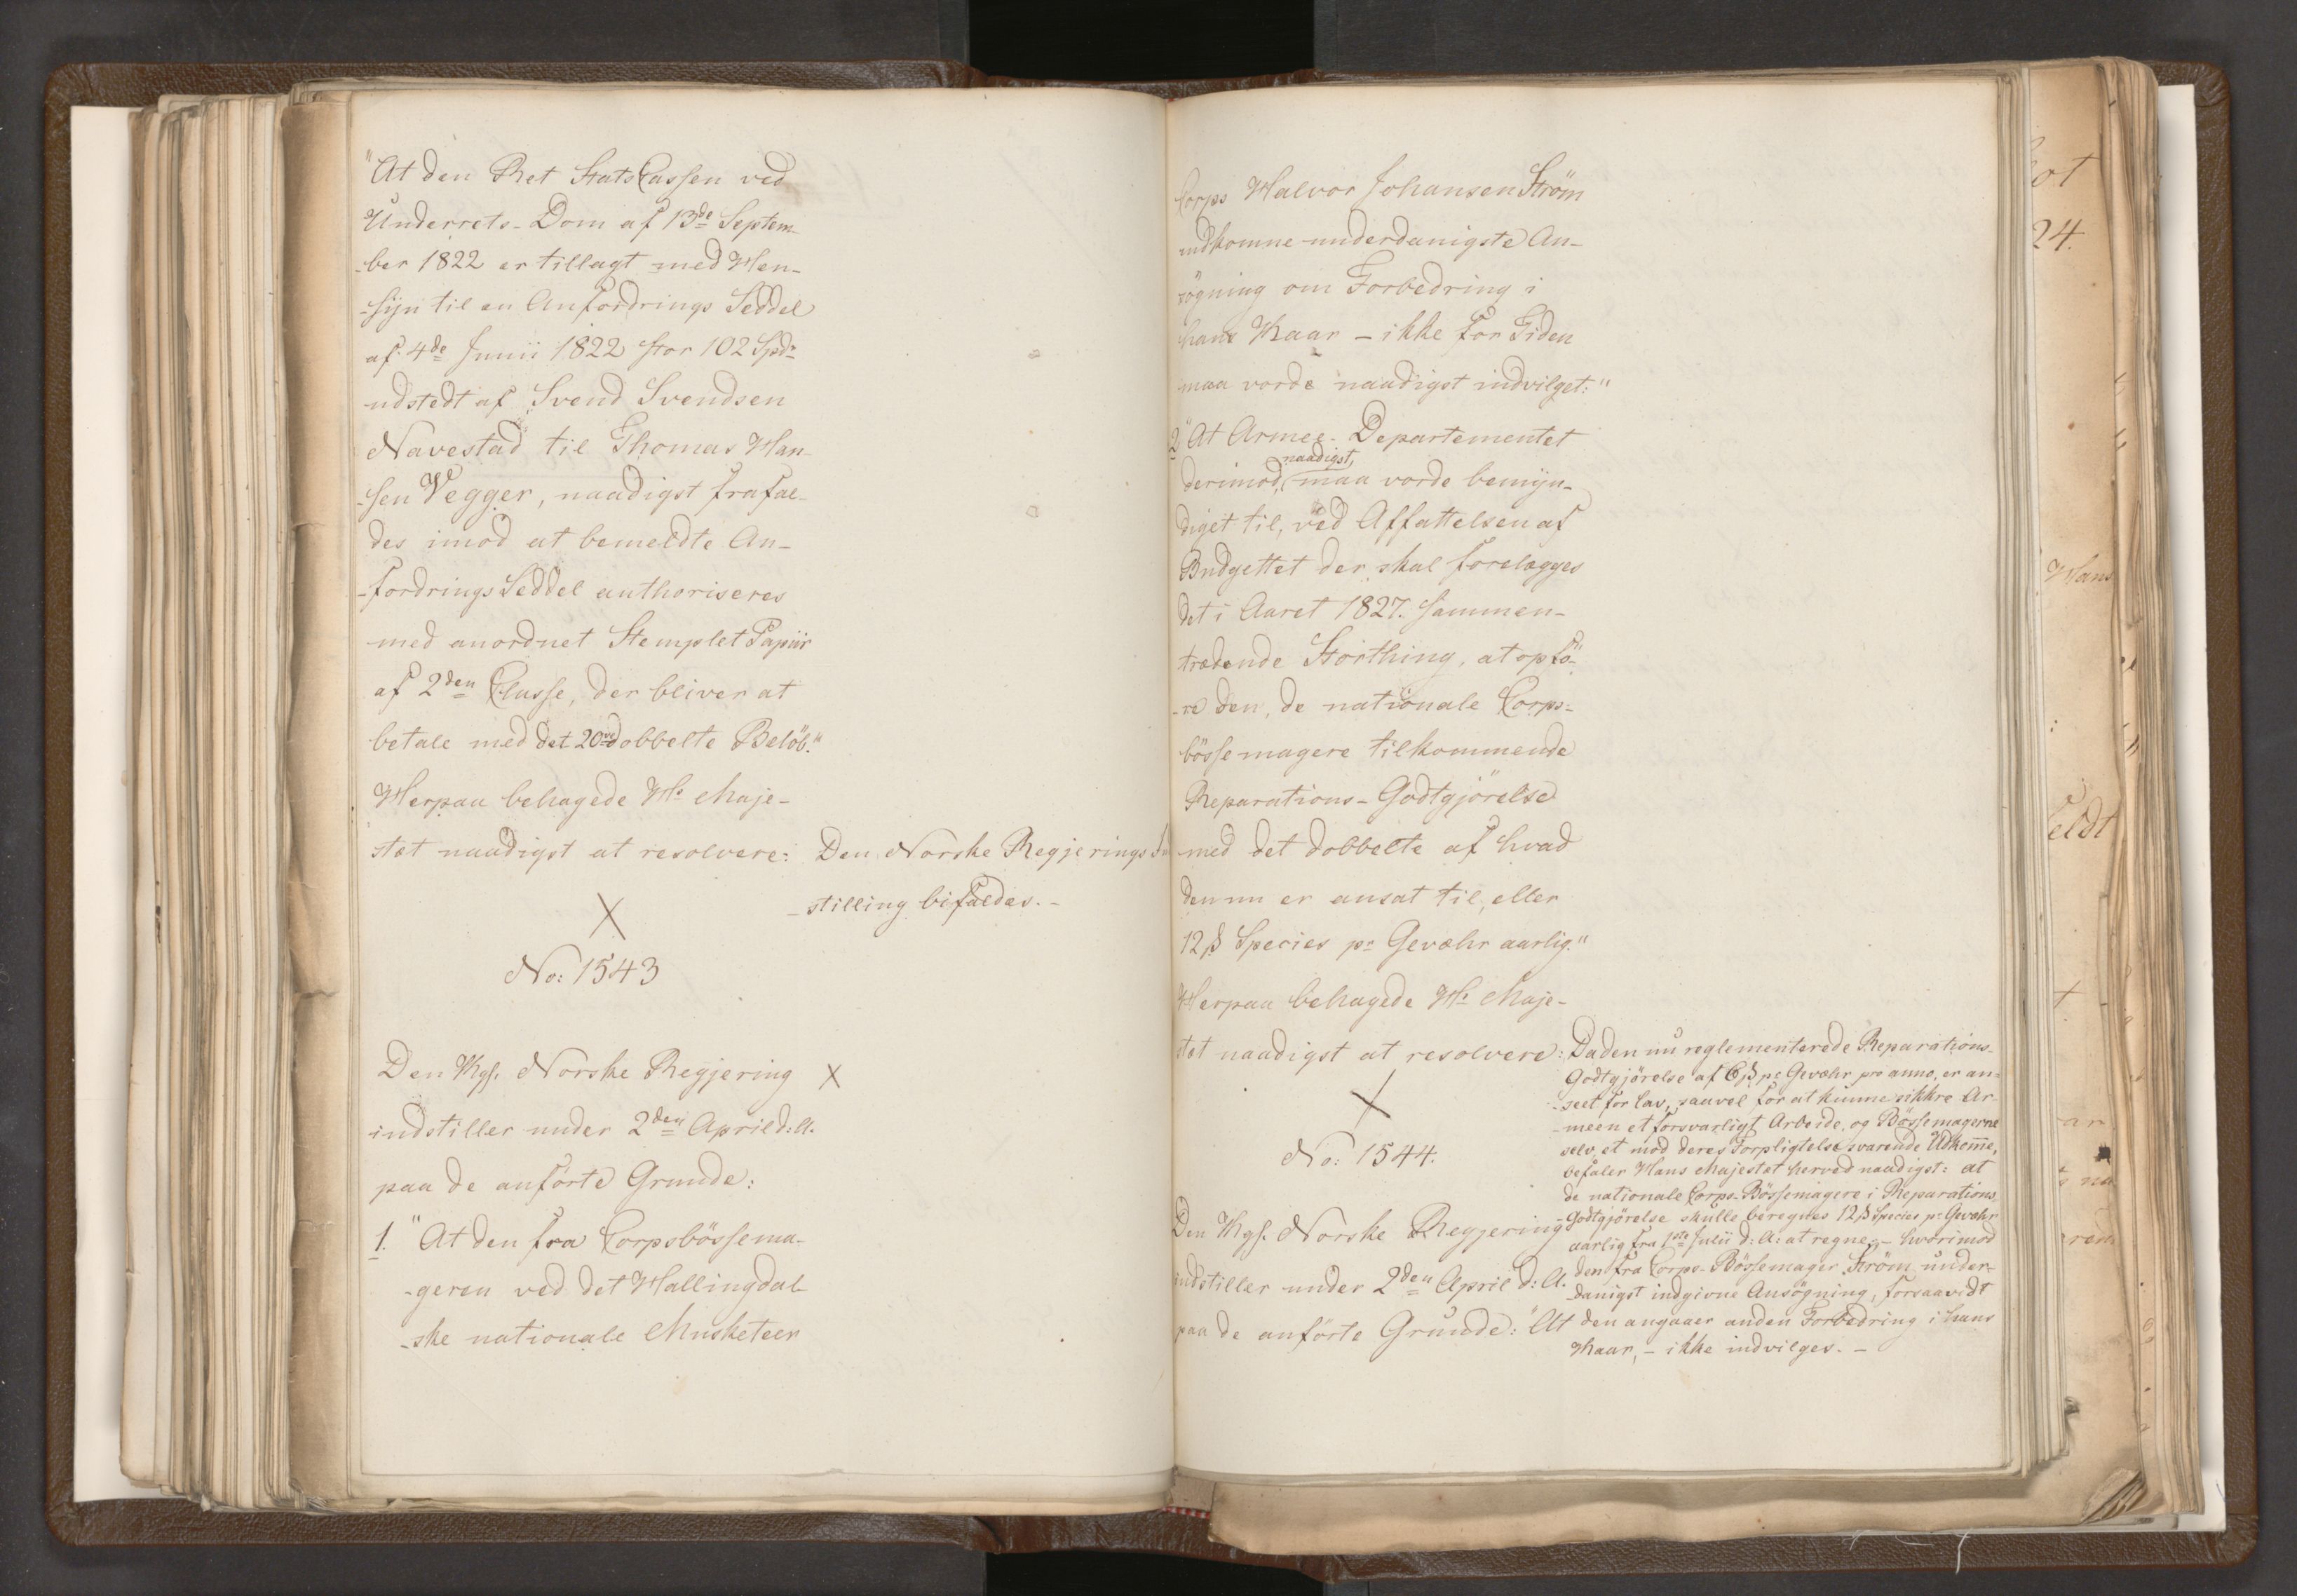 "At den Ret StatsCassen ved
Underrets-Dom af 13de Septem-
-ber 1822 er tillagt med Hen-
-syn til en Anfordrings Seddel
af 4de Junii 1822 stor 102 Spdr
udstedt af Svend Svendsen
Navestad til Thomas Han-
-sen Vegger, naadigst frafal-
des imod at bemeldte An-
-fordringsSeddel authoriseres
med anordnet Stemplet Papiir
af 2den Classe, der bliver at
betale med det 20vedobbelte Beløb."
Herpaa behagede Hs Maje-
stæt naadigst at resolvere:
Den Norske Regjerings In
-stilling bifaldes.-
X
No: 1543
Den Kgs. Norske Regjering X
indstiller under 2den April d: A.
paa de anførte Grunde:
1. "At den fra Corpsbössema-
-geren ved det Hallingdal-
-ske nationale Musketeer
Corps Halvor Johansen Ström
indkomne underdanigste An-
søgning om Forbedring i
hans Kaar - ikke for Tiden
maa vorde naadigst indvilget:"
2. "At Armee-Departementet
naadigst
derimod, maa vorde bemyn-
diget til, ved Affattelsen af
Budgettet der skal forelægges
det i Aaret 1827. sammen-
trædende Storthing, at opfö-
-re den, de nationale Corps-
bössemagere tilkommende
Reparations-Godtgjörelse
med det dobbelte af hvad
den nu er ansat til, eller
12 ß Species pr Gevæhr aarlig."
Herpaa behagede Hs Maje-
stæt naadigst at resolvere:
X
No: 1544.
Den Kgs. Norske Regjering
indstiller under 2den April d: A.
paa de anförte Grunde: "At
Da den nu reglementerede Reparations-
Godtgjörelse af 6 ß pr Gevæhr pro anno, er an-
-seet for lav, saavel for at kunne sikkre Ar-
-meen et forsvarligt Arbeide, og Bössemagerne
selv, et mod deres Forpligtelse svarende Udkomme,
befaler Hans Majestæt herved naadigst: at
de nationale Corps-Bössemagere i Reparations
-Godtgjörelse skulle beregnes 12 ß Species pr Gevæhr
aarlig fra 1ste Julii d: A: at regne; - hvorimod
den fra Corps-Bössemager Ström under-
-danigst indgivne Ansögning, forsaavidt
den angaaer anden Forbedring i hans
Kaar, - ikke indvilges. -
24.
Hans
eldt